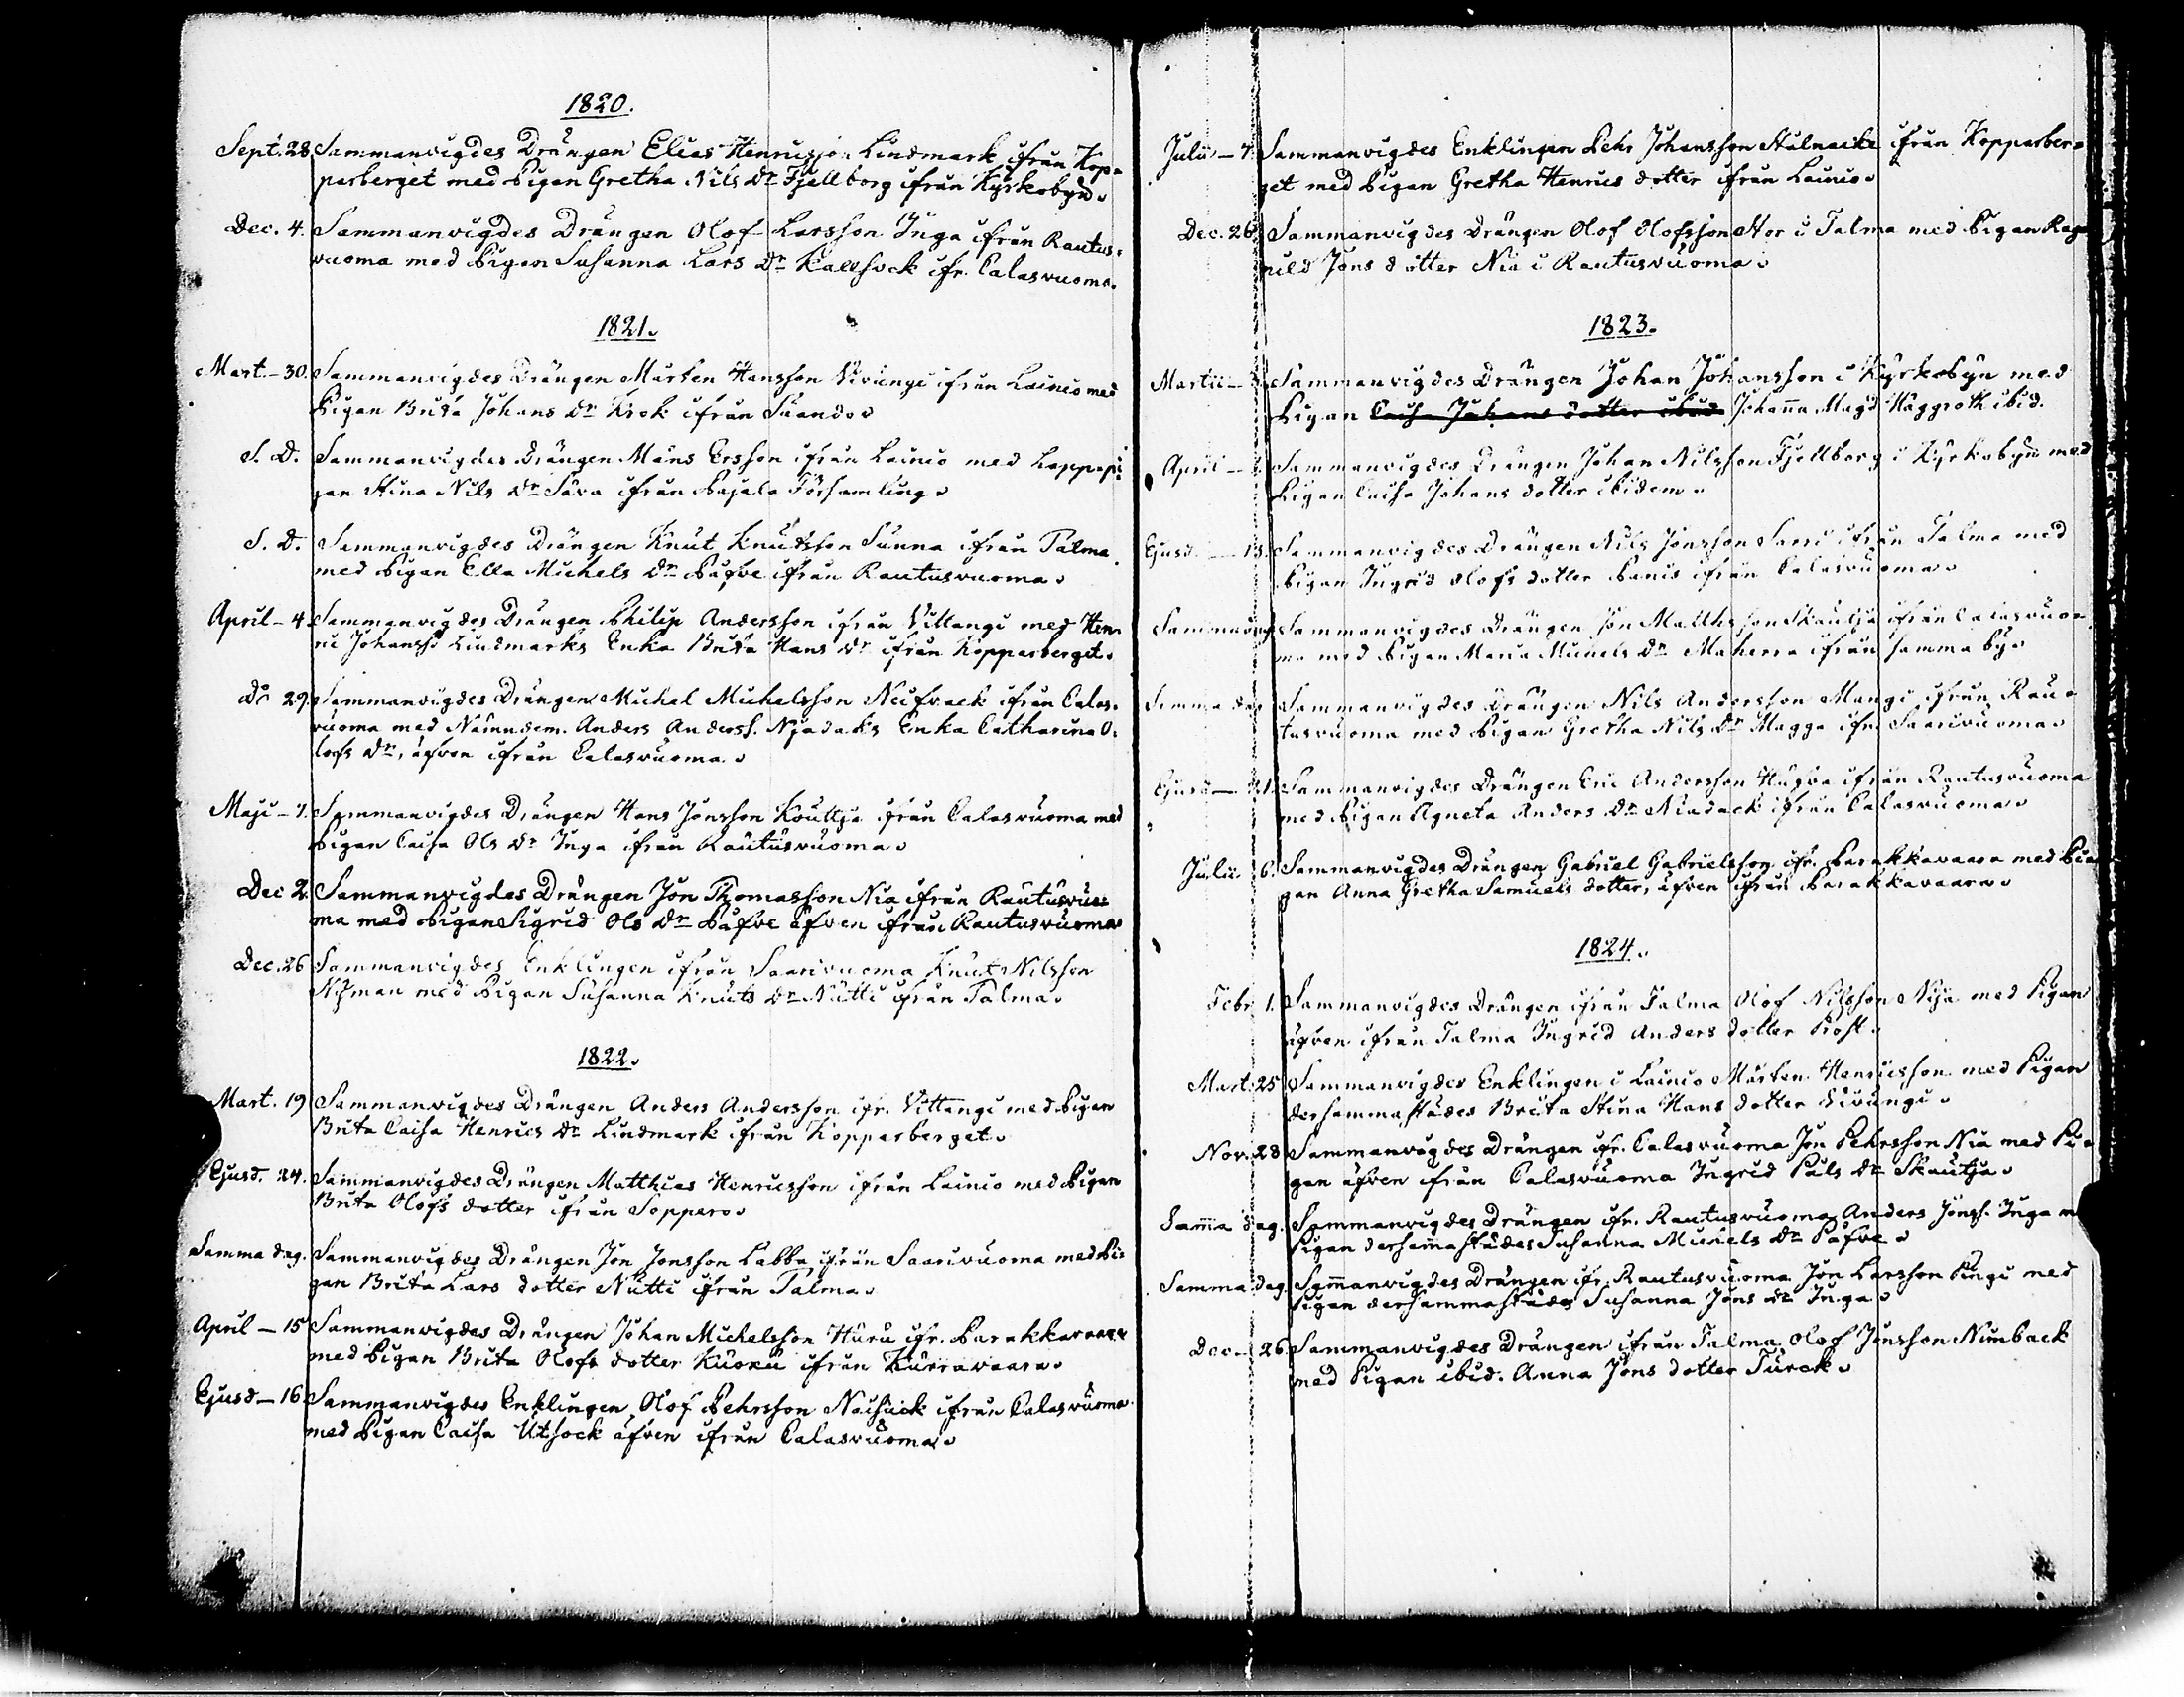 1820.
Sept. 28. Sammanvigdes Drängen Elias Henricsson Lindmark ifrån Kop-
parberget med Pigan Gretha Nils Dr Fjellborg ifrån Kyrkobyn.
Dec. 4. Sammanvigdes Drängen Olof Larsson Inga ifrån Rautus-
vuoma med Pigan Susanna Lars Dr Kallsock ifr. Calasvuoma.
1821.
Mart. - 30. Sammanvigdes Drängen Mårten Hansson Vivungi ifrån Lainio med
Pigan Brita Johans Dr Krok ifrån Suando.
S. D. Sammanvigdes Drängen Måns Ersson ifrån Lainio med Lappepi-
gan Stina Nils Dr Sara ifrån Pajala Församling.
S. D. Sammanvigdes Drängen Knut Knutsson Sunna ifrån Talma
med Pigan Ella Michels Dr Påfve ifrån Rautusvuoma.
April - 4. Sammanvigdes Drängen Philip Andersson ifrån Vittangi med Hen-
ric Johanss. Lindmarks Enka Brita Hans Dr ifrån Kopparberget.
Do 29. Sammanvigdes Drängen Michel Michelsson Neifvack ifrån Calas-
vuoma med Nämndem. Anders Anderss. Njadaks Enka Catharina O-
lofs Dr, äfven ifrån Calasvuoma.
Maji - 7. Sammanvigdes Drängen Hans Jonsson Kouttja ifrån Calasvuoma med
Pigan Caisa Ols Dr Inga ifrån Rautusvuoma.
Dec 2. Sammanvigdes Drängen Jon Thomasson Nia ifrån Rautusvuo-
ma med Pigan Sigrid Ols Dr Påfve äfven ifrån Rautusvuoma
Dec. 26 Sammanvigdes Enklingen ifrån Saarivuoma Knut Nilsson
med Pigan Susanna Knuts Dr Nutti ifrån Talma.
1822.
Mart. 19 Sammanvigdes Drängen Anders Andersson ifr. Vittangi med Pigan
Brita Caisa Henrics Dr Lindmark ifrån Kopparberget.
Ejusd. 24. Sammanvigdes Drängen Matthias Henricsson ifrån Lainio med Pigan
Brita Olofs dotter ifrån Soppero.
Samma dag. Sammanvigdes Drängen Jon Jonsson Labba ifrån Saarivuoma med Pi-
gan Brita Lars dotter Nutti ifrån Talma.
April - 15 Sammanvigdes Drängen Johan Michelsson Huru ifr. Parakkavaara
med Pigan Brita Olofs dotter Kuoku ifrån Kurravaara.
Ejusd - 16 Sammanvigdes Enklingen Olof Pehrsson Naisuck ifrån Calasvuoma
med Pigan Caisa Utsock äfven ifrån Calasvuoma.
Julii - 7. Sammanvigdes Enklingen Pehr Johansson Stålnacke ifrån Kopparber-
get med Pigan Gretha Henrics dotter ifrån Lainio.
Dec. 26 Sammanvigdes Drängen Olof Olofsson Stor i Talma med Pigan Rag-
nild Jons dotter Nia i Rautusvuoma.
1823.
Martii - Sammanvigdes Drängen Johan Johansson i Kyrkobyn med
Pigan Caisa Johans dotter ibid Johanna Magd Häggroth ibid.
April - Sammanvigdes Drängen Johan Nilsson Fjellborg i Kyrkobyn med
Pigan Caisa Johans dotter ibidem.
Ejusd. - 13. Sammanvigdes Drängen Nils Jonsson Sarri ifrån Talma med
Pigan Ingrid Olofs dotter Panis ifrån Calasvuoma.
Samma dag Sammanvigdes Drängen Jon Matthsson Skautja ifrån Calasvuo-
ma med Pigan Maria Michels Dr Maherra ifrån samma by.
Samma dag Sammanvigdes Drängen Nils Andersson Mangi ifrån Rau-
tusvuoma med Pigan Gretha Nils Dr Magga ifr. Saarivuoma.
Ejusd - 21. Sammanvigdes Drängen Eric Andersson Hugva ifrån Rautusvuoma
med Pigan Agneta Anders Dr Niadack ifrån Calasvuoma.
Julii 6. Sammanvigdes Drängen Gabriel Gabrielsson ifr. Parakkavaara med Pi-
gan Anna Gretha Samuels dotter, äfven ifrån Parakkavaara.
1824.
Febr. 1. Sammanvigdes Drängen ifrån Talma Olof Nilsson Nija med Pigan
äfven ifrån Talma Ingrid Anders dotter Prost.
Mart. 25 Sammanvigdes Enklingen i Lainio Mårten Henricsson med Pigan
dersammastädes Brita Stina Hans dotter Vivungi.
Nov. 28 Sammanvigdes Drängen ifr. Calasvuoma Jon Pehrsson Nia med Pi-
gan äfven ifrån Calasvuoma Ingrid Påls Dr Skautja.
Samma dag. Sammanvigdes Drängen ifr. Rautusvuoma Anders Jonss. Inga m
Pigan dersammastädes Susanna Michels Dr Påfve.
Samma dag. Sammanvigdes Drängen ifr. Rautusvuoma Jon Larsson Pingi med
Pigan dersammastädes Susanna Jons Dr Inga.
Dec - 26 Sammanvigdes Drängen ifrån Talma Olof Jonsson Nimback
med Pigan ibid. Anna Jons dotter Turek.